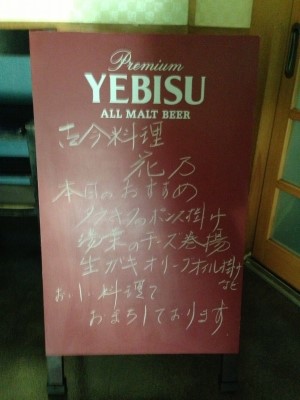 Premium
YEBISU
ALL MALT BEER
古今料理
花乃
本日のおすすめ
のポン酢掛け
湯葉のチーズ巻揚
生ガキオリーブオイル掛け
など
おいしい料理で
おまちしております